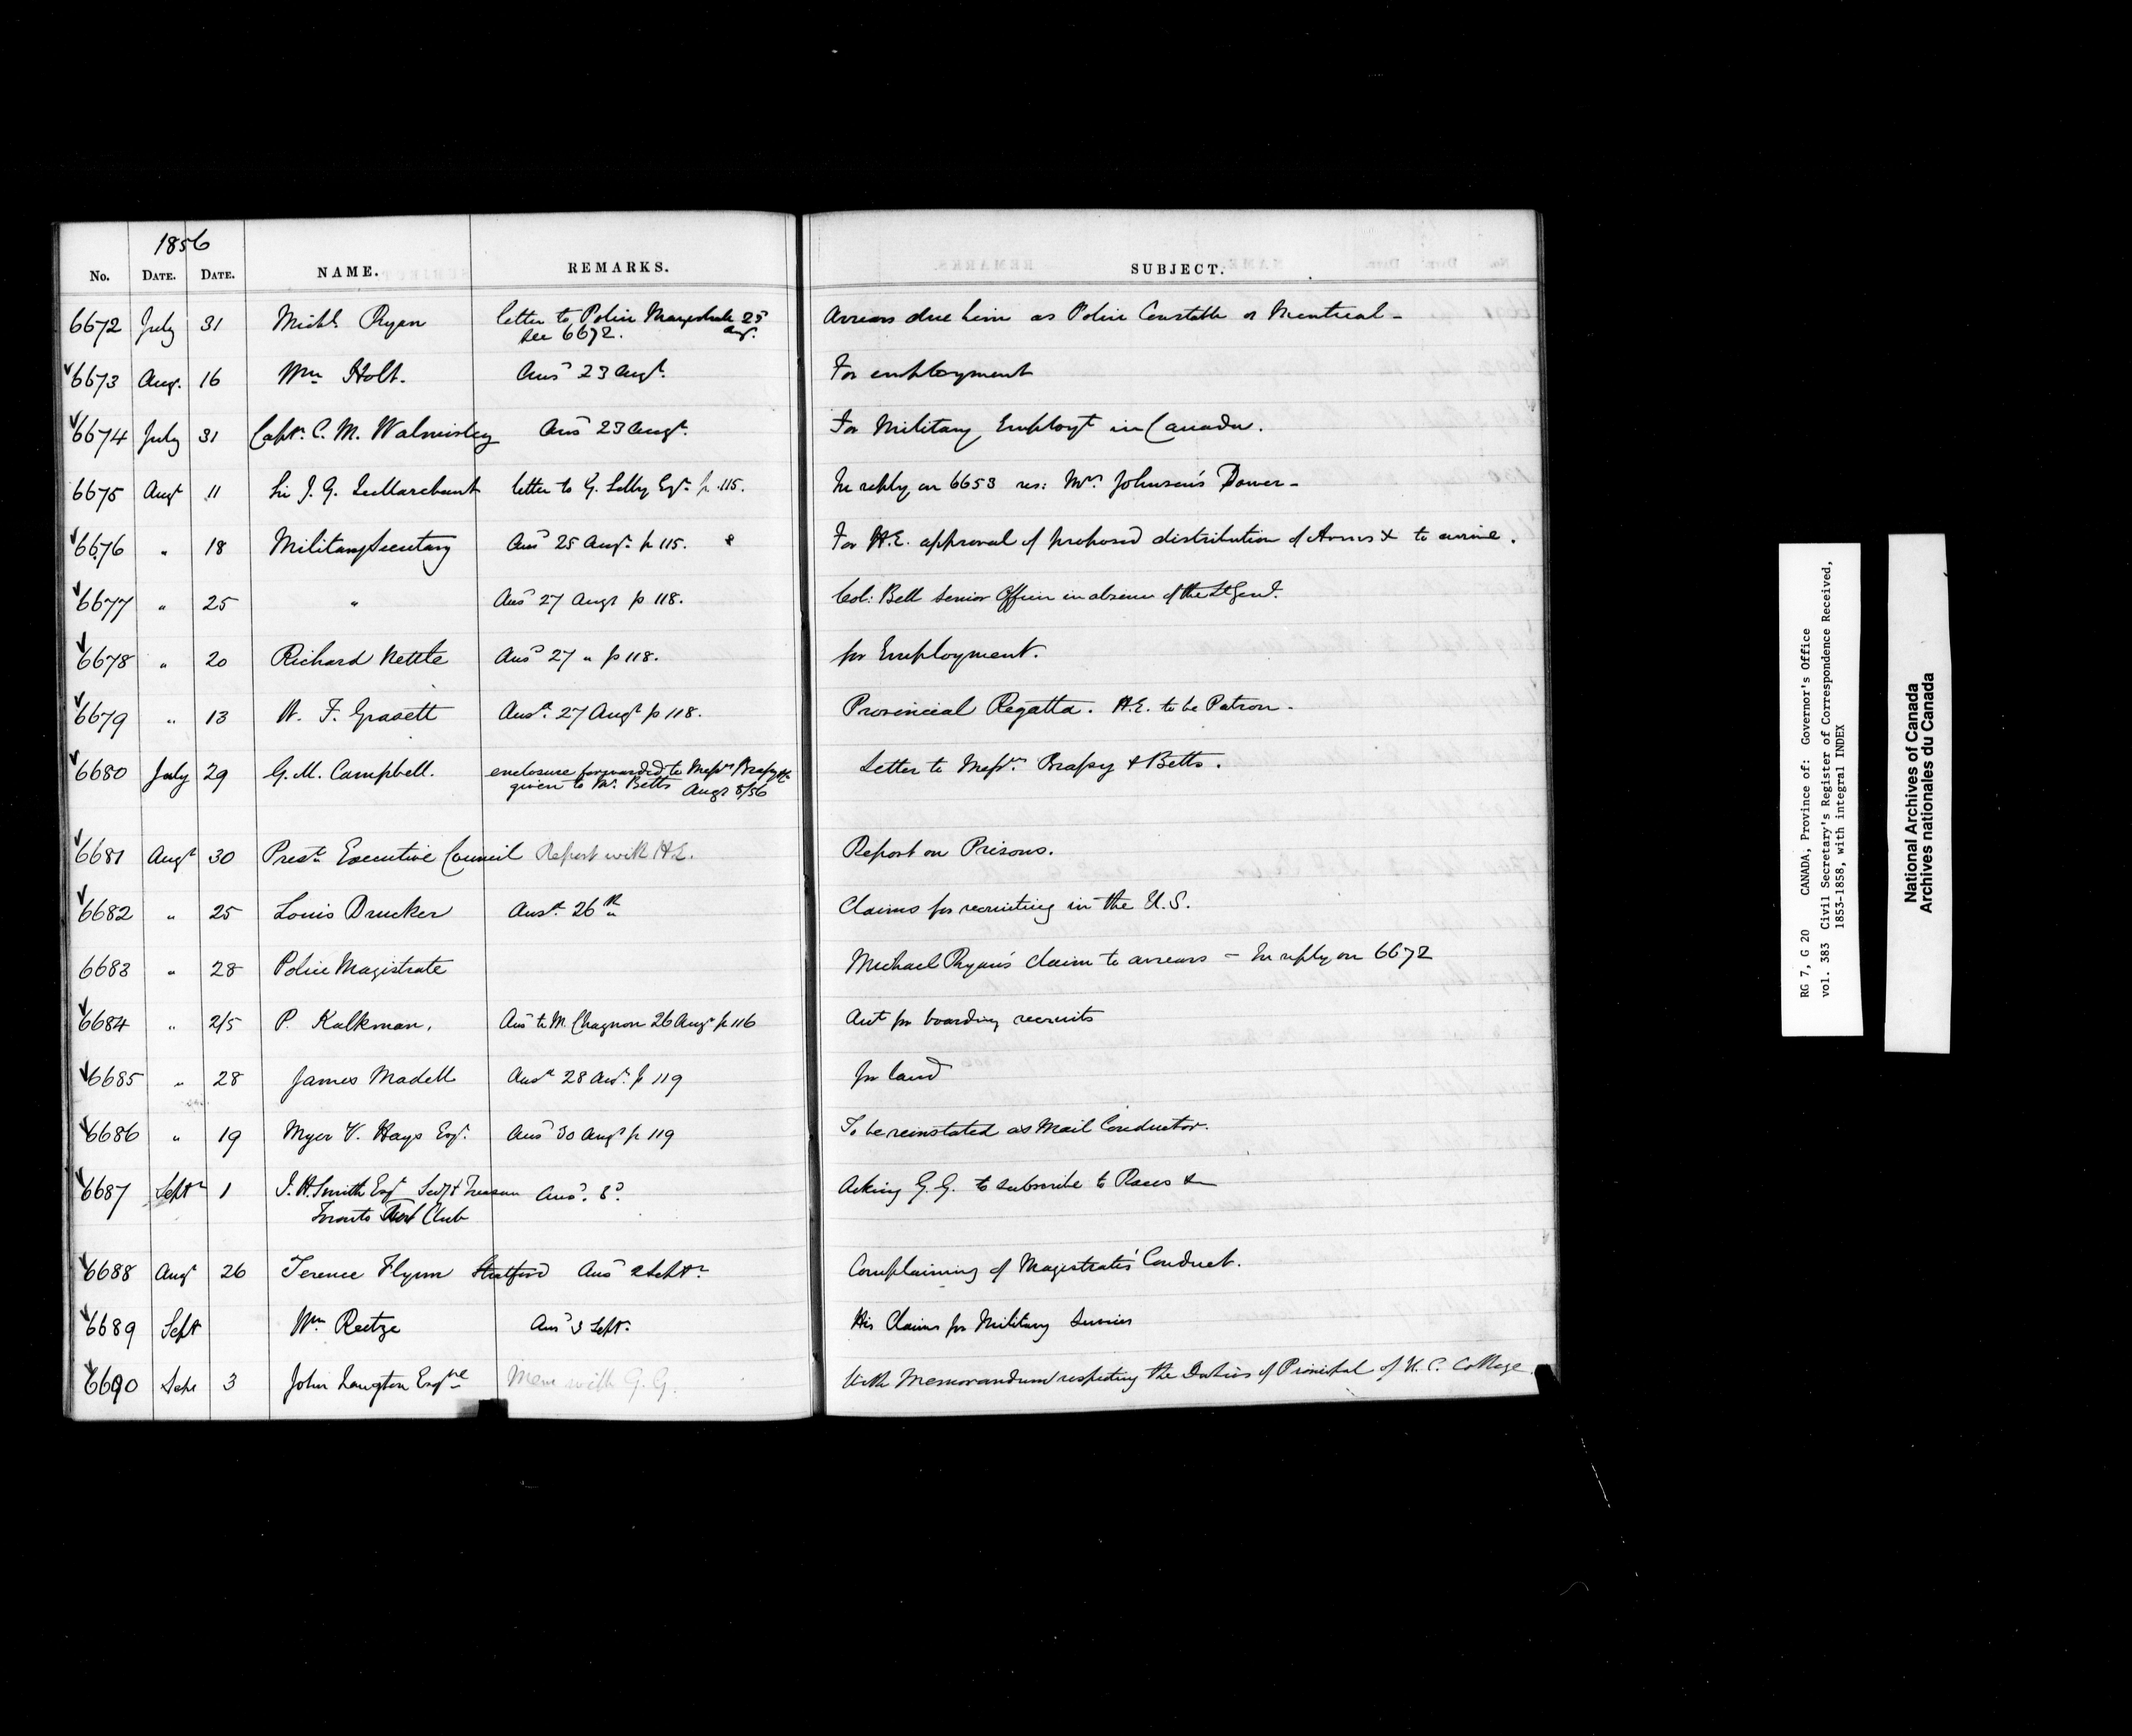 1856
No. DATE. DATE. NAME. REMARKS. SUBJECT.
6672 July 31 Michl Ryan letter to Police Magistrate 25 Augt. Arrears due him as Police Constable at Montreal -
see 6672.
6673 Aug. 16 Wm Holt. Ansd 23 Augt. For employment
6674 July 31 Captn. C. M. Walmisley Ansd 23 Augt. For Military Employt in Canada.
6675 Augt 11 Sir J. G. LeMarchant letter to G. Selby Esqr. p. 115. In reply on 6653 res: Mrs Johnson's Dower -
6676 " 18 Military Secretary Ansd 25 Augt. p 115. For H.E. approval of proposed distribution of Arms & to arrive.
6677 " 25 " Ansd 27 Augt p 118. Col: Bell Senior Officer in absence of the Lt Genl.
6678 " 20 Richard Nettle Ansd 27 " p 118. for Employment.
6679 " 13 W. F. Grasett Ansd. 27 Augt p 118. Provincial Regatta. H.E. to be Patron -
6680 July 29 G. M. Campbell. enclosure forwarded to Messrs Brassy & Letter to Messrs. Brassy & Betts.
given to Mr. Betts Augt 8/56
6681 Augt 30 Prest. Executive Council Report with H.E. Report on Prisons.
6682 " 25 Louis Drucker Ansd. 26th " Claims for recruiting in the U.S.
6683 " 28 Police Magistrate Michael Ryan's claim to arrears - In reply on 6672
6684 " 25 P. Kalkman. Ansd to M. Chagnon 26 Augt p 116 Act for boarding recruits
6685 " 28 James Madell Ansd 28 Aut. p 119 for land
6686 " 19 Myer V. Hays Esqr. Ansd 30 Augt p 119 To be reinstated as Mail Conductor.
6687 Septr 1 J. H. Smith Esqr Secy & Treasurer Ansd. 8d. Asking G. G. to subscribe to Races &c
Toronto Turf Club
6688 Augt 26 Terence Flynn Stratford Ansd 2 Septr. Complaining of Magistrates' Conduct.
6689 Sept Wm Reetze Ansd 3 Septr. His Claims for Military Services
6690 Sept 3 John Langton Esqre Mem with G. G. With Memorandum respecting the Duties of Principal of U. C. College
RG 7, G 20 CANADA, Province of: Governor's Office
vol. 383 Civil Secretary's Register of Correspondence Received,
1853-1858, with integral INDEX
National Archives of Canada
Archives nationales du Canada